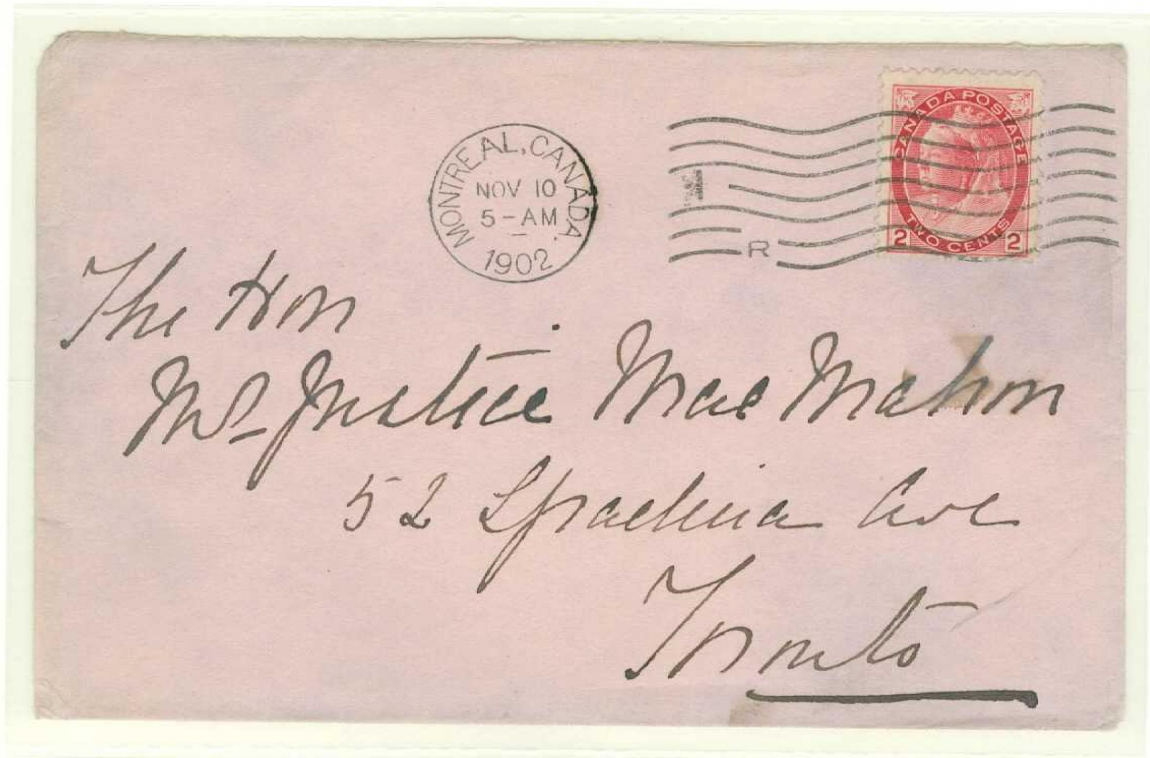 MONTREAL, CANADA.
NOV 10
5-AM
1902
1
R
CANADA POSTAGE
TWO CENTS
2 2
The Hon
Mr Justice MacMahon
52 Spadina Ave
Toronto